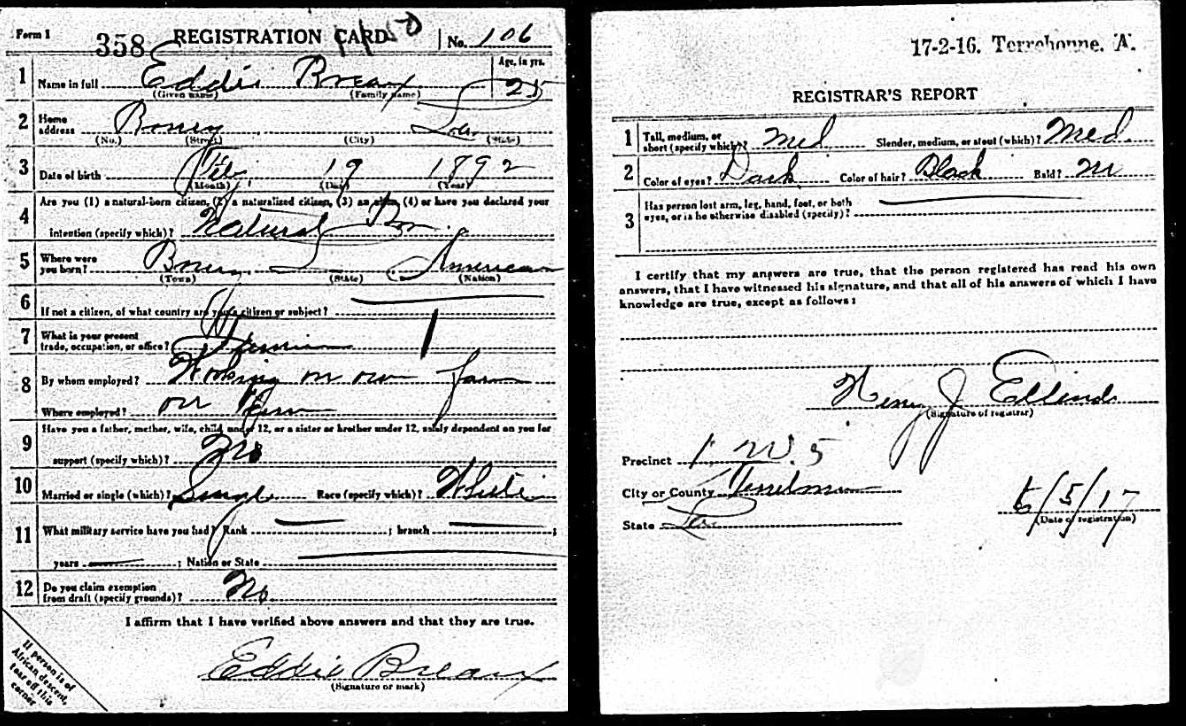 Form 1 358 REGISTRATION CARD No. 106
1 Name in full Eddie Breaux Age, in yrs. 25
(Given name) (Family name)
2 Home address Bourg La
(No.) (Street) (City) (State)
3 Date of birth Feb 19 1892
(Month) (Day) (Year)
4 Are you (1) a natural-born citizen, (2) a naturalized citizen, (3) an alien, (4) or have you declared your
intention (specify which)? Natural Born
5 Where were you born? Bourg La American
(Town) (State) (Nation)
6 If not a citizen, of what country are you a citizen or subject?
7 What is your present trade, occupation, or office? 1
8 By whom employed? Working on own farm
Where employed? on
9 Have you a father, mother, wife, child under 12, or a sister or brother under 12, solely dependent on you for
support (specify which)? No
10 Married or single (which)? Single Race (specify which)? White
11 What military service have you had? Rank ; branch ;
years ; Nation or State
12 Do you claim exemption from draft (specify grounds)? No
I affirm that I have verified above answers and that they are true.
Eddie Breaux
(Signature or mark)
If person is of
African descent,
tear off this
corner
17-2-16. Terrebonne, A.
REGISTRAR'S REPORT
1 Tall, medium, or short (specify which)? Med Slender, medium, or stout (which)? Med.
2 Color of eyes? Dark Color of hair? Black Bald? No
3 Has person lost arm, leg, hand, foot, or both
eyes, or is he otherwise disabled (specify)?
I certify that my answers are true, that the person registered has read his own
answers, that I have witnessed his signature, and that all of his answers of which I have
knowledge are true, except as follows:
Henry J Ellender
(Signature of registrar)
Precinct 1 W. 5
City or County Terrebonne
State La 6/5/17
(Date of registration)